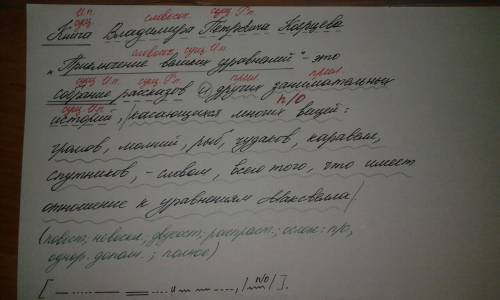 И.п.
сущ. словосоч. сущ. Р.п.
Книга Владимира Петровича Карцева
словосоч. сущ. И.п.
„Приключение великих уравнений" - это
сущ. И.п. сущ. Р.п. прил. прил.
собрание рассказов и других занимательных
сущ. И.п. п/о
историй, /касающихся многих вещей:
громов, молний, рыб, чудаков, каравелл,
спутников, - словом, всего того, что имеет
отношение к уравнениям Максвелла/
(повест; невоскл, двусост; распрост.; ослож: п/о,
однор. дополн.; полное)
и , | п/о |].